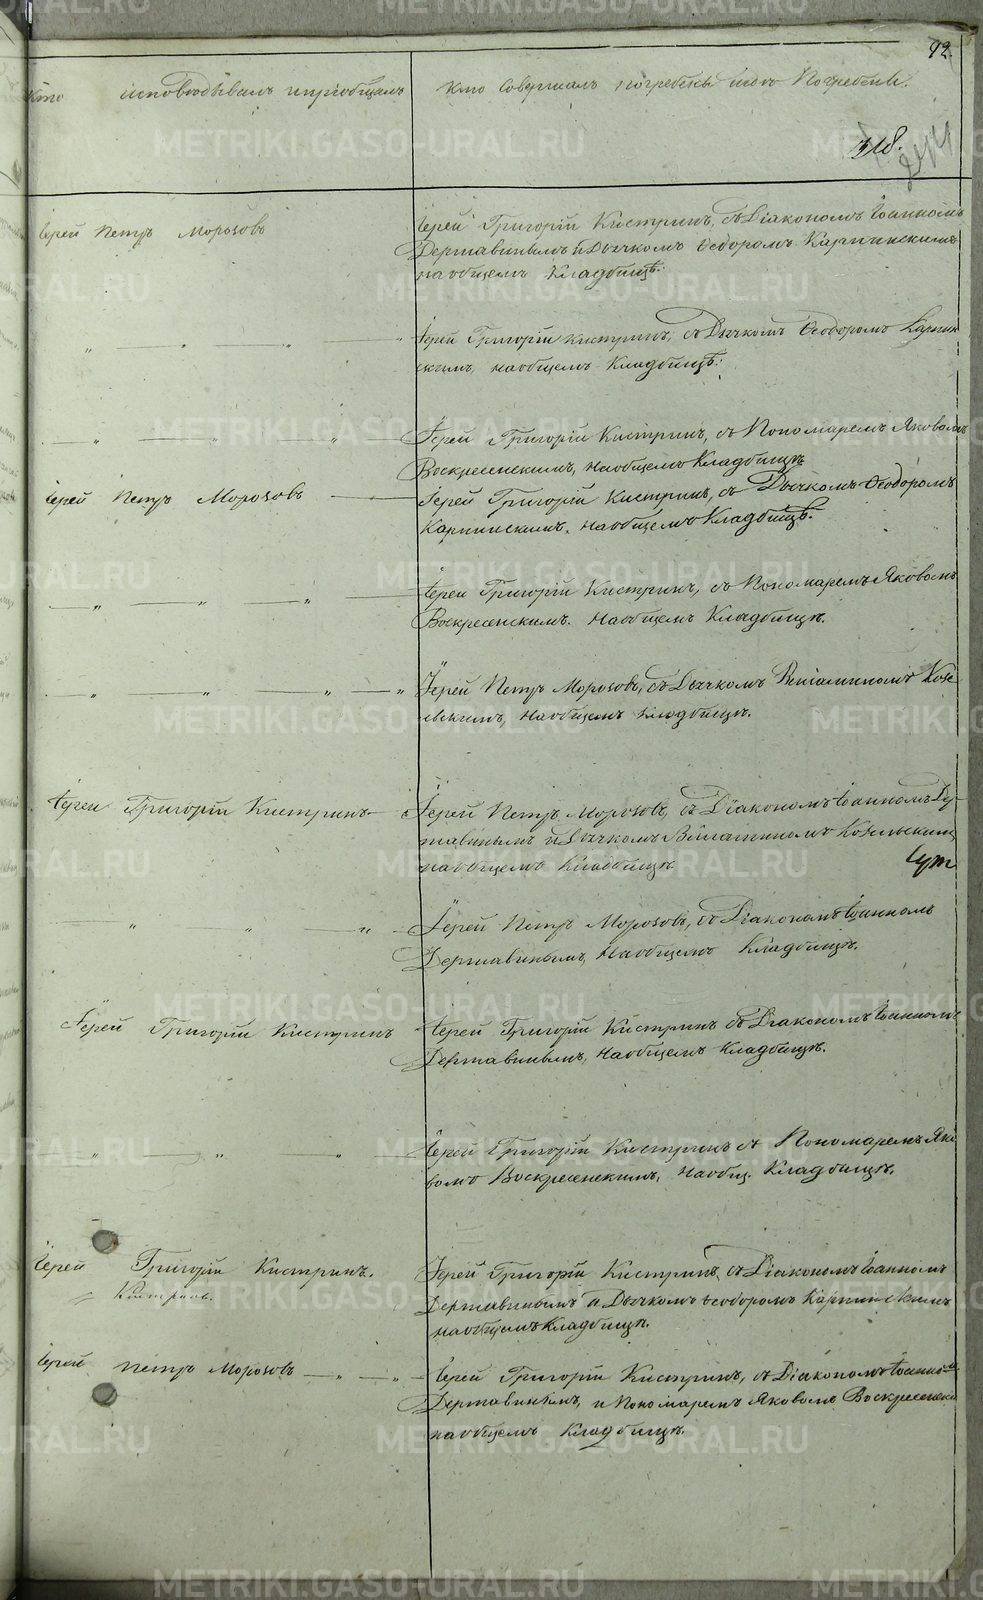 92.
Кто исповѣдывалъ и пріобщалъ
Кто совершалъ погребеніе и гдѣ погребены.
318.
Іерей Петръ Морозовъ
Іерей Григорій Кистринъ, съ Діакономъ Іоанномъ
Державинымъ и Дьячкомъ Ѳеодоромъ Карпинскимъ
на общемъ Кладбищѣ.
" " " "
Іерей Григорій Кистринъ, съ Дьячкомъ Ѳеодоромъ Карпин
скимъ, на общемъ Кладбищѣ.
" " "
Іерей Григорій Кистринъ, съ Пономаремъ Яковомъ
Воскресенскимъ, на общемъ Кладбищѣ
Іерей Петръ Морозовъ
Іерей Григорій Кистринъ, съ Дьячкомъ Ѳеодоромъ
Карпинскимъ, на общемъ Кладбищѣ.
" " "
Іерей Григорій Кистринъ, съ Пономаремъ Яковомъ
Воскресенскимъ. На общемъ Кладбищѣ.
" " " "
Іерей Петръ Морозовъ, съ Дьячкомъ Веніаминомъ Козе
левскимъ, на общемъ кладбищѣ.
Іерей Григорій Кистринъ
Іерей Петръ Морозовъ, съ Діакономъ Іоанномъ Дер
жавинымъ и Дьячкомъ Веніаминомъ
на общемъ Кладбищѣ
" " "
Іерей Петръ Морозовъ, съ Діакономъ Іоанномъ
Державинымъ, На общемъ Кладбищѣ.
Іерей Григорій Кистринъ
Іерей Григорій Кистринъ съ Діакономъ Іоанномъ
Державинымъ, На общемъ Кладбищѣ.
" " "
Іерей Григорій Кистринъ съ Пономаремъ Яко
вомъ Воскресенскимъ, На общ. Кладбищѣ.
Іерей Григорій Кистринъ.
Кистринъ.
Іерей Григорій Кистринъ, съ Діакономъ Іоанномъ
Державинымъ и Дьячкомъ Ѳеодоромъ Карпинскимъ
на общемъ Кладбищѣ.
Іерей Петръ Морозовъ " "
Іерей Григорій Кистринъ, съ Діакономъ Іоанномъ
Державинымъ, и Пономаремъ Яковомъ Воскресенски
на общемъ Кладбищѣ.
METRIKI.GASO-URAL.RU